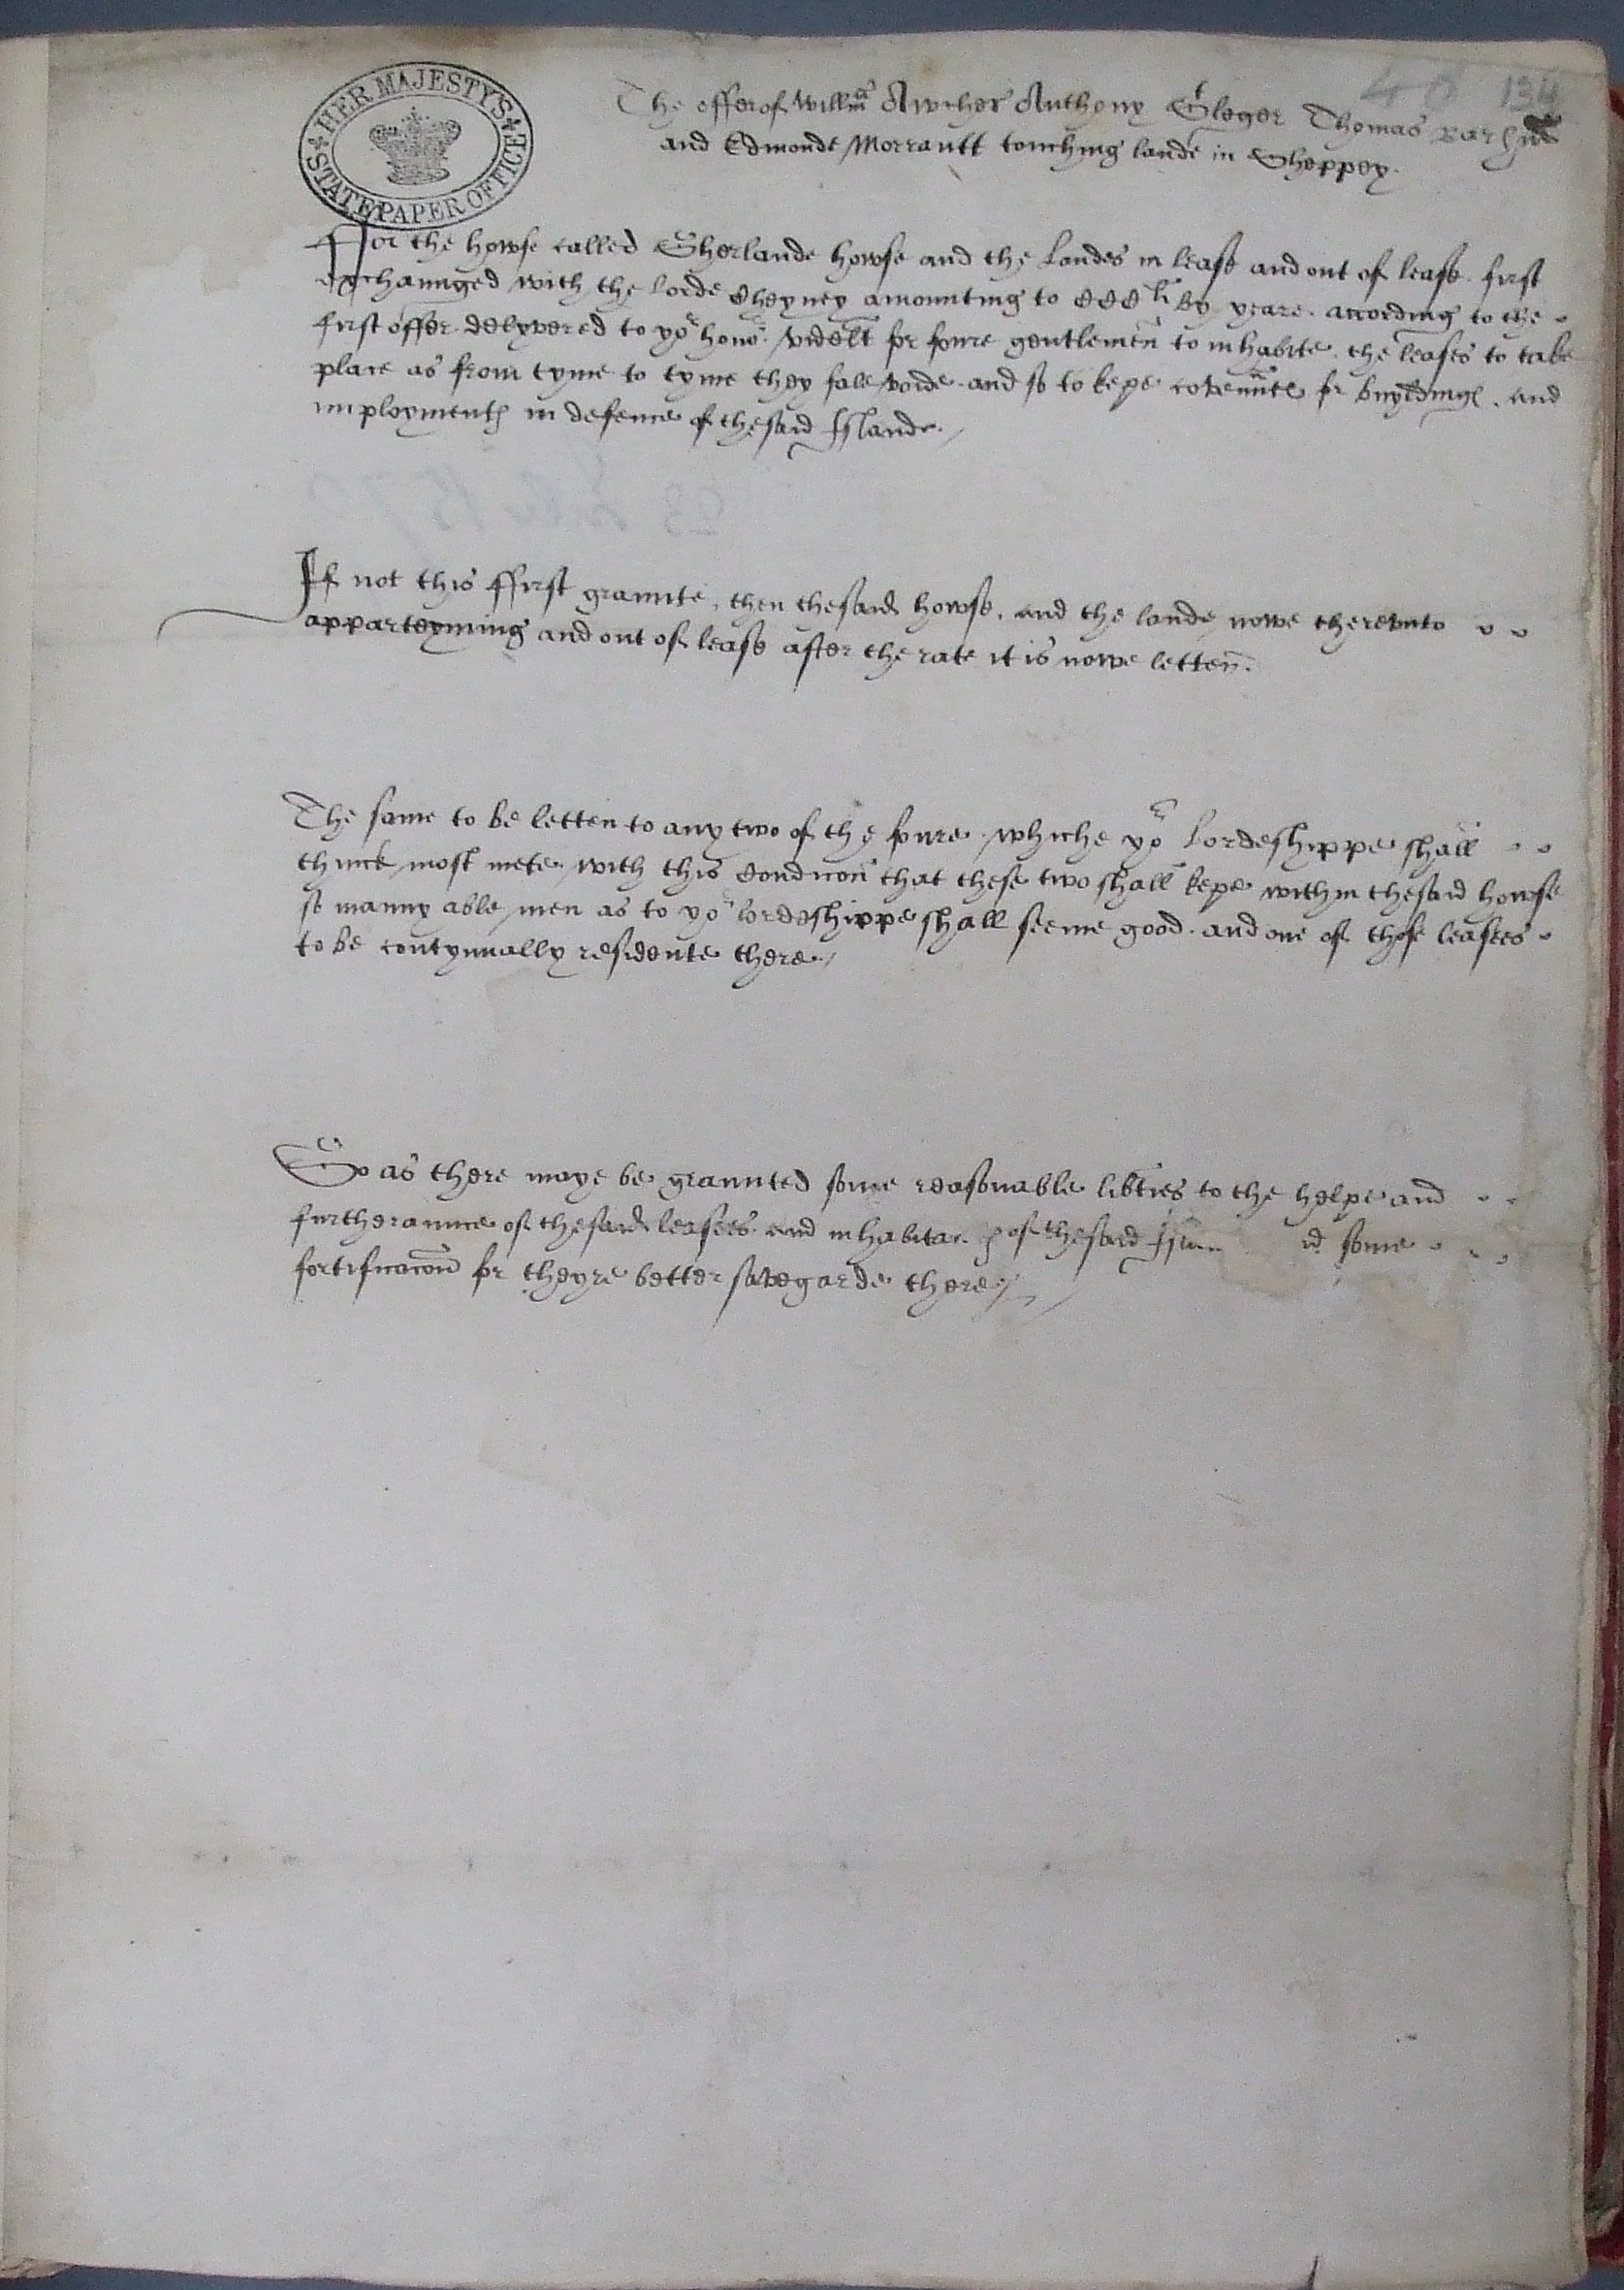 HER MAJESTY'S STATE PAPER OFFICE
134
The offer of Willm Awcher Anthony Sleger Thomas
and Edmonde Morrantt touching lande in Sheppey.
For the howse called Sherlande howse and the Landes in lease and out of lease. first
exchaunged with the lorde Cheyney amounting to CCC li by yeare. according to the
first offer delyvered to yor honor. videlt for foure gentlemen to inhabite. the leases to take
place as from tyme to tyme they fale voide. and so to kepe covennte for buyldings. and
imployments in defence of thesaid Islande.
If not this ffirst graunte, then thesaid howse. and the lande nowe therevnto
apparteyning and out of lease after the rate it is nowe letten.
The same to be letten to any two of the foure. whiche yor Lordeshippe shall
thinck most mete with this Condicon that these two shall kepe within thesaid howse
so manny able men as to yor lordeshippe shall seeme good. and one of those leasees
to be contynually residente there.
So as there maye be graunted some reasonable libties to the helpe and
furtheraunce of thesaid leasees and of thesaid some
fortificacon for theyre better savegarde there.